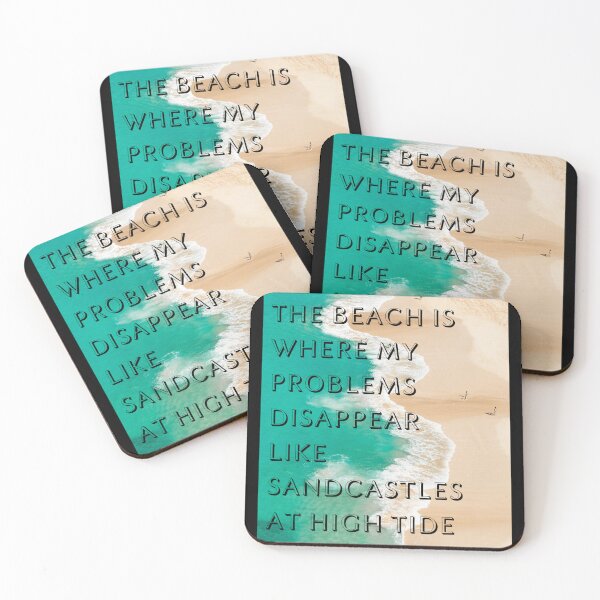 THE BEACH IS
WHERE MY
PROBLEMS
THE BEACH IS
WHERE MY
PROBLEMS
DISAPPEAR
LIKE
THE BEACH IS
WHERE MY
PROBLEMS
DISAPPEAR
LIKE
SANDCAST
AT HIGH TIDE
THE BEACH IS
WHERE MY
PROBLEMS
DISAPPEAR
LIKE
SANDCASTLES
AT HIGH TIDE